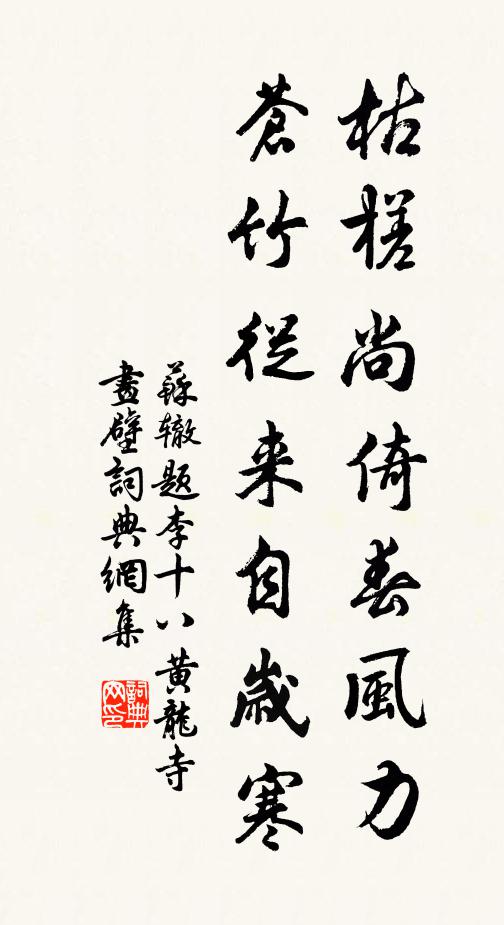 枯槎尚倚春風力
蒼竹從来自歲寒
蘇辙题李十八黄龍寺
畫壁詞典網集
詞典网印